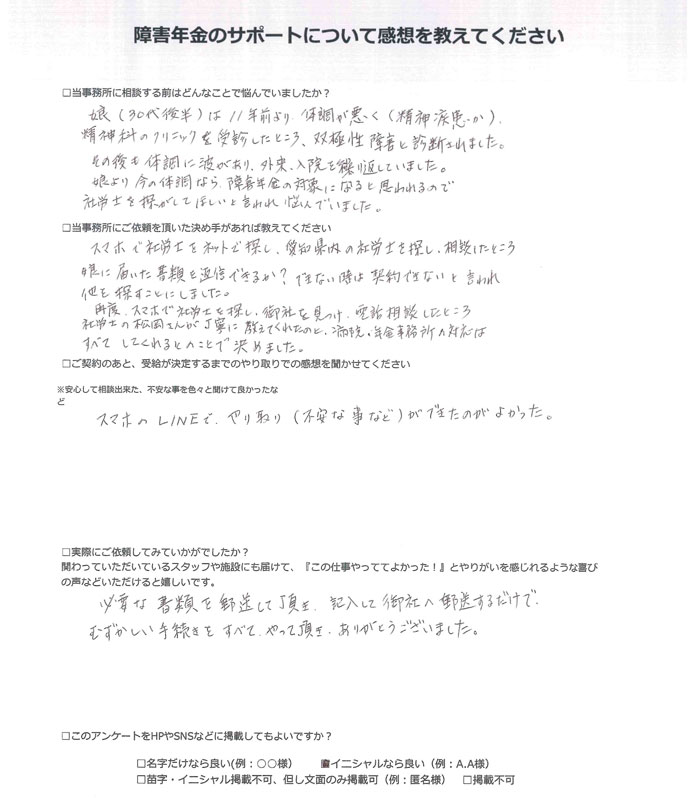 障害年金のサポートについて感想を教えてください
□当事務所に相談する前はどんなことで悩んでいましたか？
娘（30代後半）は11年前より、体調が悪く（精神疾患か）、
精神科のクリニックを受診したところ、双極性障害と診断されました。
その後も体調に波があり、外来、入院を繰り返していました。
娘より今の体調なら、障害年金の対象になると思われるので
社労士を探がしてほしいと言われ悩んでいました。
□当事務所にご依頼を頂いた決め手があれば教えてください
スマホで社労士をネットで探し、愛知県内の社労士を探し、相談したところ
娘に届いた書類を返信できるか？できない時は契約できないと言われ
他を探すことにしました。
再度、スマホで社労士を探し、御社を見つけ、電話相談したところ
社労士の松岡さんが丁寧に教えてくれたのと、病院・年金事務所への対応は
すべてしてくれるとのことで決めました。
□ご契約のあと、受給が決定するまでのやり取りでの感想を聞かせてください
※安心して相談出来た、不安な事を色々と聞けて良かったな
ど
スマホのLINEで、やり取り（不安な事など）ができたのがよかった。
□実際にご依頼してみていかがでしたか？
関わっていただいているスタッフや施設にも届けて、『この仕事やっててよかった！』とやりがいを感じれるような喜び
の声などいただけると嬉しいです。
必要な書類を郵送して頂き、記入して御社へ郵送するだけで、
むずかしい手続きをすべて、やって頂き、ありがとうございました。
□このアンケートをHPやSNSなどに掲載してもよいですか？
□名字だけなら良い(例：○○様） ■イニシャルなら良い（例：A.A様）
□苗字・イニシャル掲載不可、但し文面のみ掲載可（例：匿名様） □掲載不可